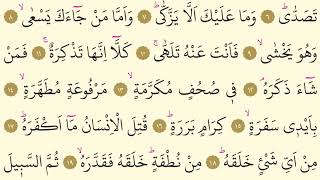 تَصَدّٰىۜ ﴿٦﴾ وَمَا عَلَيْكَ اَلَّا يَزَّكّٰىۜ ﴿٧﴾ وَاَمَّا مَنْ جَٓاءَكَ يَسْعٰىۙ ﴿٨﴾
وَهُوَ يَخْشٰىۙ ﴿٩﴾ فَاَنْتَ عَنْهُ تَلَهّٰىۚ ﴿١٠﴾ كَلَّٓا اِنَّهَا تَذْكِرَةٌۚ ﴿١١﴾ فَمَنْ
شَٓاءَ ذَكَرَهُۢ ﴿١٢﴾ ف۪ي صُحُفٍ مُكَرَّمَةٍۙ ﴿١٣﴾ مَرْفُوعَةٍ مُطَهَّرَةٍۙ ﴿١٤﴾
بِاَيْد۪ي سَفَرَةٍۙ ﴿١٥﴾ كِرَامٍ بَرَرَةٍۜ ﴿١٦﴾ قُتِلَ الْاِنْسَانُ مَٓا اَكْفَرَهُۜ ﴿١٧﴾
مِنْ اَيِّ شَيْءٍ خَلَقَهُۜ ﴿١٨﴾ مِنْ نُطْفَةٍۜ خَلَقَهُ فَقَدَّرَهُۙ ﴿١٩﴾ ثُمَّ السَّب۪يلَ